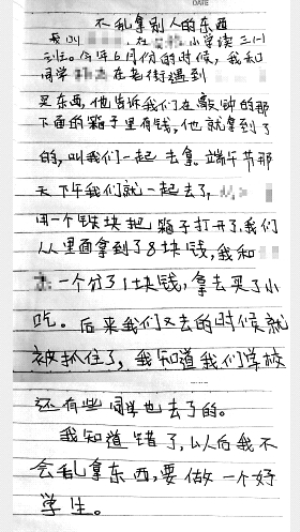 DATE
不乱拿别人的东西
我叫 在 小学读三(一)
到过。今年6月份的时候，我和
同学 在老街遇到
买东西，他告诉我们在敲钟的那
下面的箱子里有钱，他就拿到了
的，叫我们一起去拿。端午节那
天下午我们就一起去了，
用一个铁块把箱子打开了，我们
从里面拿到了8块钱，我和
一个分了1块钱，拿去买了小
吃。后来我们又去的时候就
被抓住了，我知道我们学校
还有些同学也去了的。
我知道错了，以后我不
会乱拿东西，要做一个好
学生。